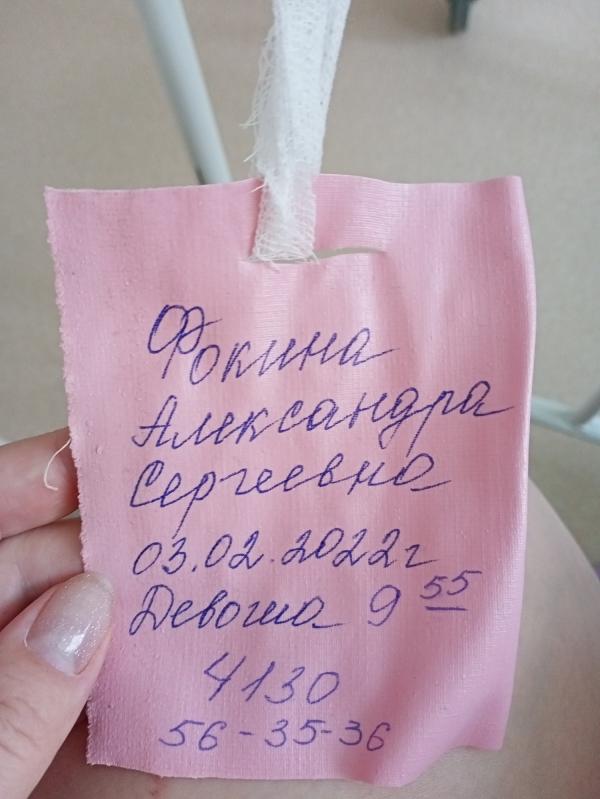 Фокина
Александра
Сергеевна
03.02.2022г
Девочка 9 55
4130
56-35-36